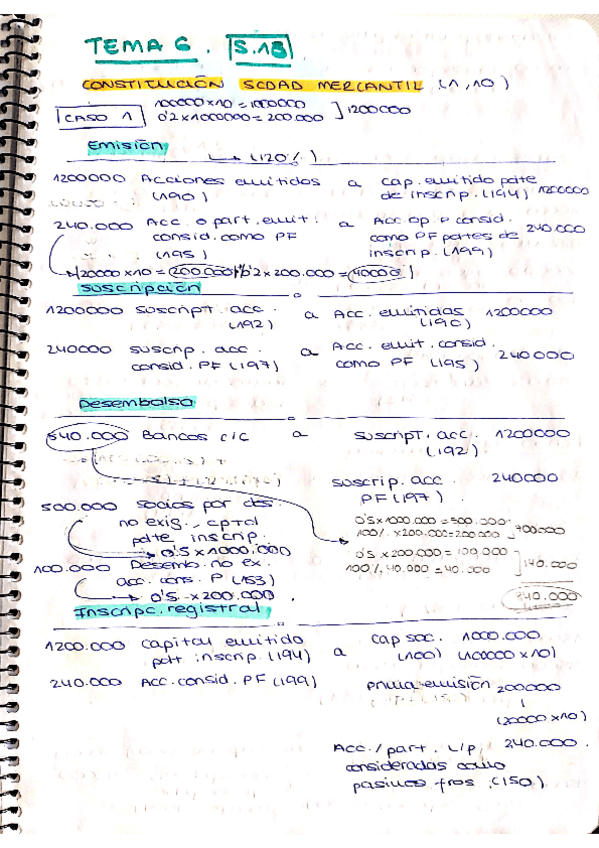 TEMA 6. S.18
CONSTITUCIÓN SCDAD MERCANTIL (1,10)
CASO 1
100000x10 = 1000000
0'2x1000000= 200.000
] 1200000
Emisión
↳ (120%)
1200000 Acciones emitidas a cap. emitido pdte
(190) de inscrip. (194) 1200000
240.000 Acc. o part. emit. a Acc op. o consid.
consid. como PF como PF pdtes de 240.000
(195) inscrip. (199)
→ 20000 x10 = 200.000 0'2 x 200.000 = 40000
Suscripción
1200000 suscripт. acc. a Acc. emitidas 1200000
(192) (190)
240000 suscrip. acc. a Acc. emit. consid.
consid. PF (197) como PF (195) 240000
Desembolso
540.000 Bancos c/c a suscript. acc. 1200000
(192)
suscrip. acc 240000
PF (197)
500.000 socios por des.
no exig., cptal
pdte inscrip.
→ 0'5 x 1000.000
0'5 x 1000.000 = 500.000
100% x200.000=200.000
] 700.000
100.000 Desemb. no ex.
acc. cons. P (153)
→ 0'5 x 200.000
0'5 x 200.000 = 100,000
100% 40.000 = 40.000
] 140.000
840.000
Inscripc. registral
1200.000 capital emitido a Cap soc. 1000.000
pdt inscrip. (194) (100) (100000 x10)
240.000 Acc. consid. PF (199) Prima emisión 200000
(20000 x10)
Acc./part. L/p 240.000.
consideradas como
pasivos fros. (150)